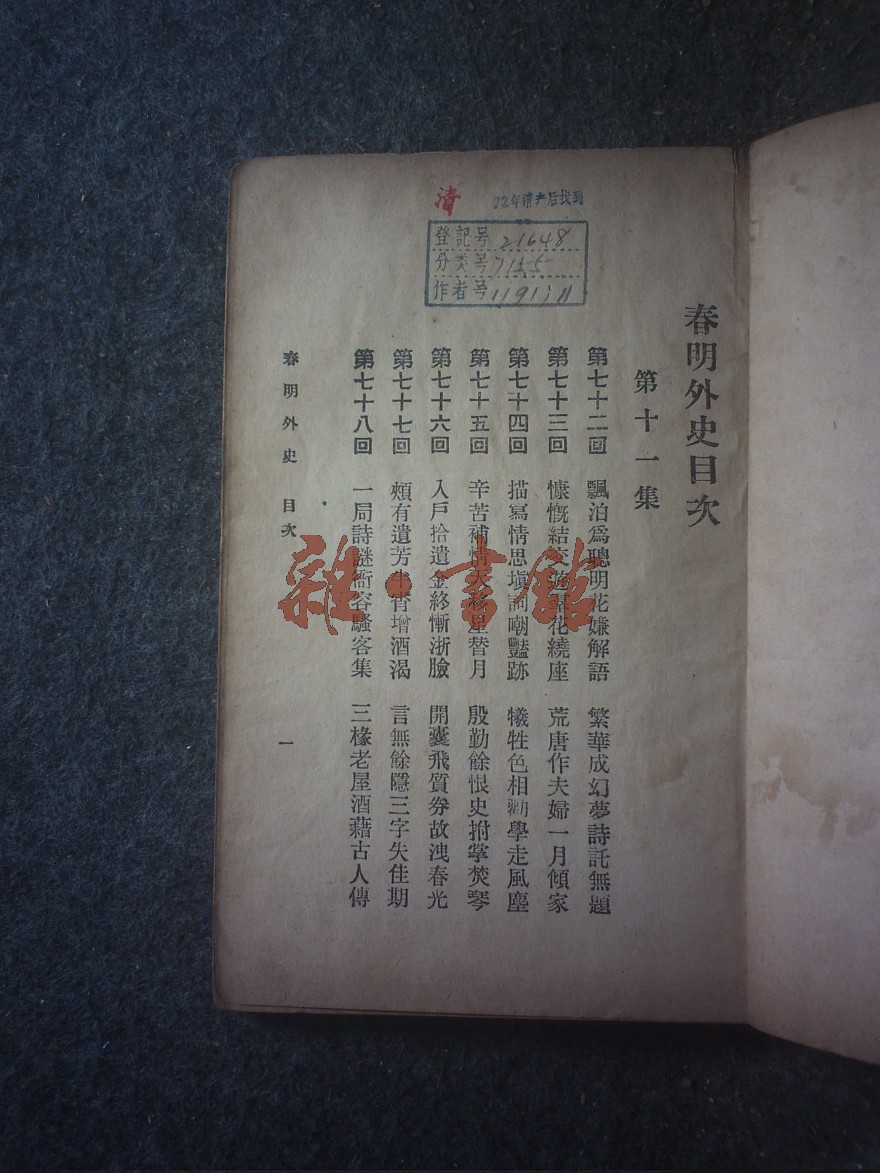 清
22年清产后找到
登記号 21648
分类号 7155
作者号
春明外史目次
第十一集
第七十二回 飄泊爲聰明花嫌解語 繁華成幻夢詩託無題
第七十三回 慷慨結交遊羣花繞座 荒唐作夫婦一月傾家
第七十四回 描寫情思塡詞嘲豔跡 犧牲色相勸學走風塵
第七十五回 辛苦補情天移星替月 殷勤餘恨史拊掌焚琴
第七十六回 入戶拾遺金終慚浙臉 開囊飛質券故洩春光
第七十七回 頰有遺芳半宵增酒渴 言無餘隱三字失佳期
第七十八回 一局詩謎衙容騷客集 三椽老屋酒藉古人傳
春明外史 目次 一
雜·書館